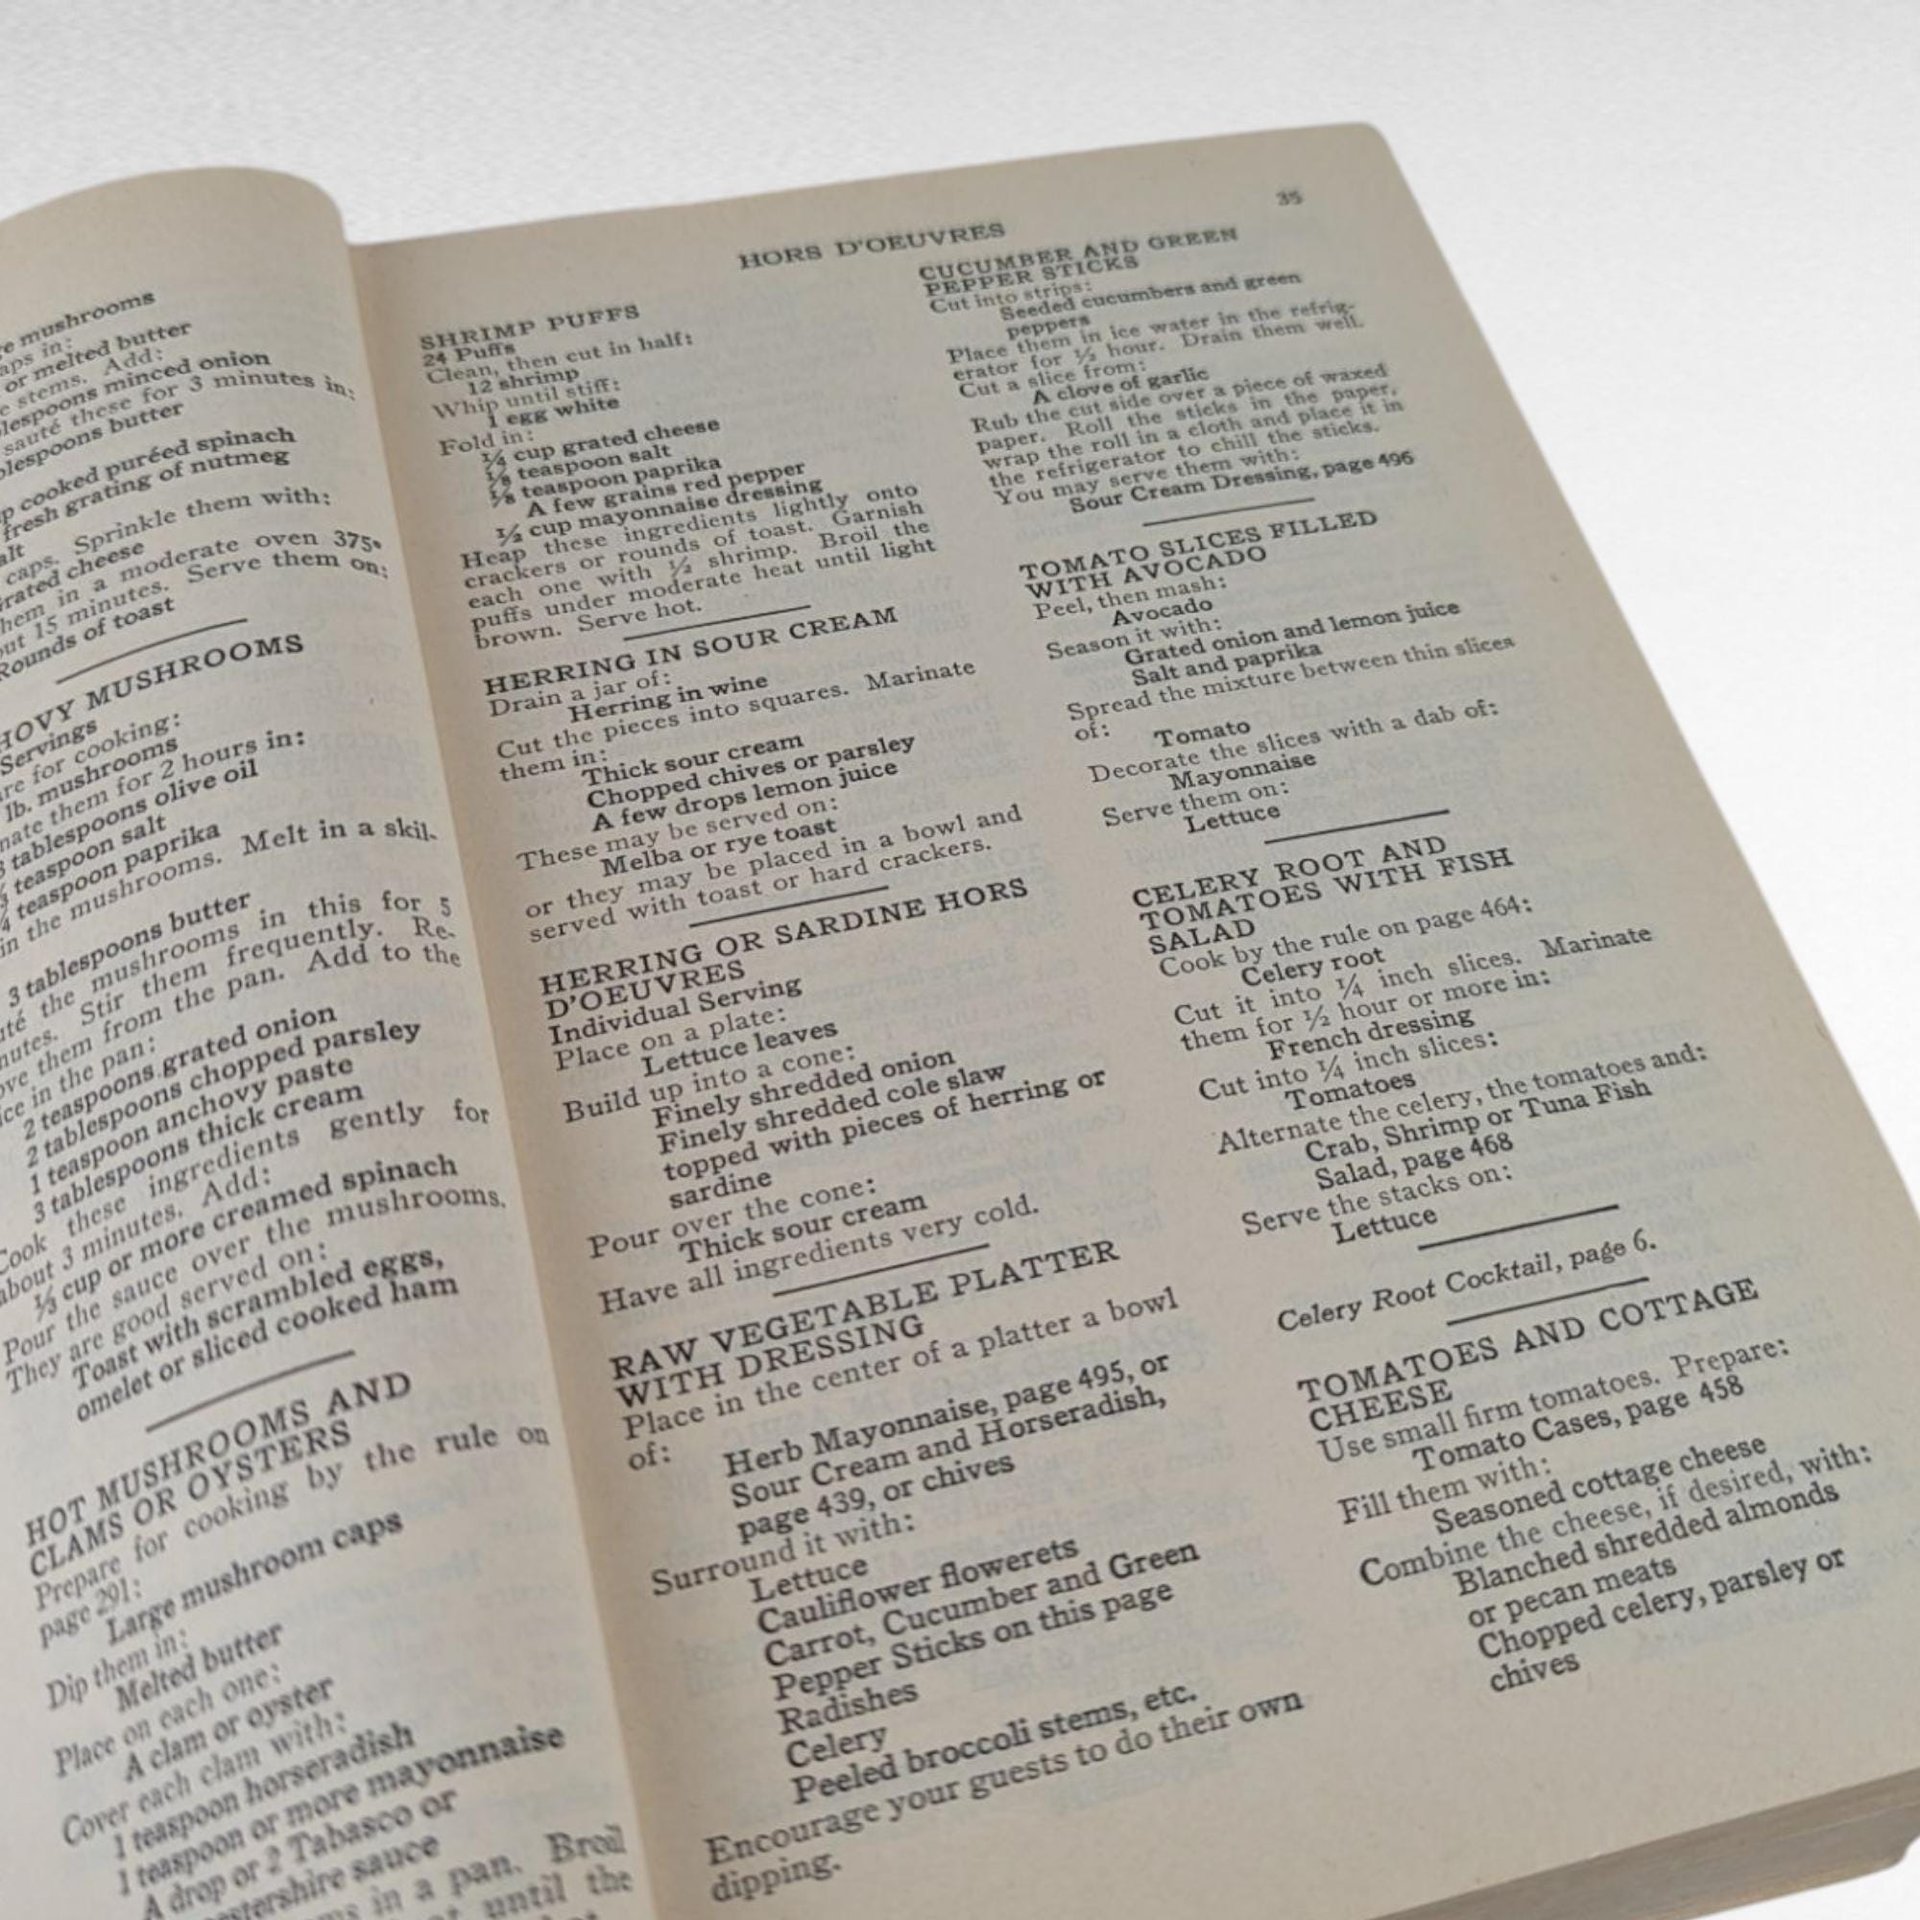 e mushrooms
aps in:
or melted butter
e stems. Add:
lespoons minced onion
sauté these for 3 minutes in:
blespoons butter
p cooked puréed spinach
fresh grating of nutmeg
alt
caps. Sprinkle them with:
rated cheese
hem in a moderate oven 375°
out 15 minutes. Serve them on:
Rounds of toast
HOVY MUSHROOMS
Servings
are for cooking:
lb. mushrooms
nate them for 2 hours in:
3 tablespoons olive oil
teaspoon salt
¼ teaspoon paprika
in the mushrooms. Melt in a skil-
3 tablespoons butter
uté the mushrooms in this for 5
nutes. Stir them frequently. Re-
ove them from the pan. Add to the
ice in the pan:
2 teaspoons grated onion
2 tablespoons chopped parsley
1 teaspoon anchovy paste
3 tablespoons thick cream
Cook these ingredients gently for
about 3 minutes. Add:
⅓ cup or more creamed spinach
Pour the sauce over the mushrooms.
They are good served on:
Toast with scrambled eggs,
omelet or sliced cooked ham
HOT MUSHROOMS AND
CLAMS OR OYSTERS
Prepare for cooking by the rule on
page 291:
Large mushroom caps
Dip them in:
Melted butter
Place on each one:
A clam or oyster
Cover each clam with:
1 teaspoon horseradish
1 teaspoon or more mayonnaise
A drop or 2 Tabasco or
estershire sauce
ms in a pan. Broil
until the
HORS D'OEUVRES
35
SHRIMP PUFFS
24 Puffs
Clean, then cut in half:
12 shrimp
Whip until stiff:
1 egg white
Fold in:
¼ cup grated cheese
⅛ teaspoon salt
⅛ teaspoon paprika
A few grains red pepper
½ cup mayonnaise dressing
Heap these ingredients lightly onto
crackers or rounds of toast. Garnish
each one with ½ shrimp. Broil the
puffs under moderate heat until light
brown. Serve hot.
HERRING IN SOUR CREAM
Drain a jar of:
Herring in wine
Cut the pieces into squares. Marinate
them in:
Thick sour cream
Chopped chives or parsley
A few drops lemon juice
These may be served on:
Melba or rye toast
or they may be placed in a bowl and
served with toast or hard crackers.
HERRING OR SARDINE HORS
D'OEUVRES
Individual Serving
Place on a plate:
Lettuce leaves
Build up into a cone:
Finely shredded onion
Finely shredded cole slaw
topped with pieces of herring or
sardine
Pour over the cone:
Thick sour cream
Have all ingredients very cold.
RAW VEGETABLE PLATTER
WITH DRESSING
Place in the center of a platter a bowl
of:
Herb Mayonnaise, page 495, or
Sour Cream and Horseradish,
page 439, or chives
Surround it with:
Lettuce
Cauliflower flowerets
Carrot, Cucumber and Green
Pepper Sticks on this page
Radishes
Celery
Peeled broccoli stems, etc.
Encourage your guests to do their own
dipping.
CUCUMBER AND GREEN
PEPPER STICKS
Cut into strips:
Seeded cucumbers and green
peppers
Place them in ice water in the refrig-
erator for ½ hour. Drain them well.
Cut a slice from:
A clove of garlic
Rub the cut side over a piece of waxed
paper. Roll the sticks in the paper,
wrap the roll in a cloth and place it in
the refrigerator to chill the sticks.
You may serve them with:
Sour Cream Dressing, page 496
TOMATO SLICES FILLED
WITH AVOCADO
Peel, then mash:
Avocado
Season it with:
Grated onion and lemon juice
Salt and paprika
Spread the mixture between thin slices
of:
Tomato
Decorate the slices with a dab of:
Mayonnaise
Serve them on:
Lettuce
CELERY ROOT AND
TOMATOES WITH FISH
SALAD
Cook by the rule on page 464:
Celery root
Cut it into ¼ inch slices. Marinate
them for ½ hour or more in:
French dressing
Cut into ¼ inch slices:
Tomatoes
Alternate the celery, the tomatoes and:
Crab, Shrimp or Tuna Fish
Salad, page 468
Serve the stacks on:
Lettuce
Celery Root Cocktail, page 6.
TOMATOES AND COTTAGE
CHEESE
Use small firm tomatoes. Prepare:
Tomato Cases, page 458
Fill them with:
Seasoned cottage cheese
Combine the cheese, if desired, with:
Blanched shredded almonds
or pecan meats
Chopped celery, parsley or
chives